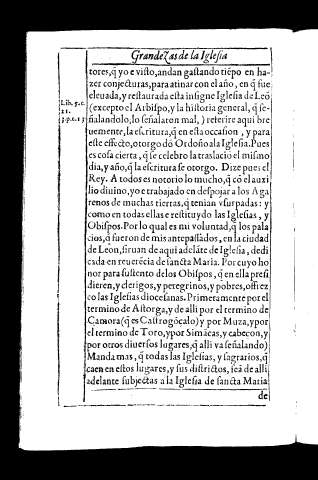 Grandezas de la Iglesia
tores, q̃ yo e visto, andan gastando tiẽpo en ha-
zer conjecturas, para atinar con el año, en q̃ fue
eleuada, y restaurada esta insigne Iglesia de Leõ
Lib. 5. c.
(excepto el Arbispo, y la historia general, q̃ se-
21.
ñalandolo, lo señalaron mal,) referire aqui bre
3. p. c. 15
uemente, la escritura, q̃ en esta occasion, y para
este effecto, otorgo dõ Ordoño a la Iglesia. Pues
es cosa cierta, q̃ se celebro la traslacio el mismo
dia, y año, q̃ la escritura se otorgo. Dize pues el
Rey. A todos es notorio lo mucho, q̃ cõ el auxi
lio diuino, yo e trabajado en despojar a los Aga
renos de muchas tierras, q̃ tenian vsurpadas: y
como en todas ellas e restituydo las Iglesias, y
Obispos. Por lo qual es mi voluntad, q̃ los pala
cios, q̃ fueron de mis antepassados, en la ciudad
de Leon, siruan de aqui adelãte de Iglesia, dedi
cada en reuerẽcia de sancta Maria. Por cuyo ho
nor para sustento de los Obispos, q̃ en ella presi
dieren, y clerigos, y peregrinos, y pobres, offrez
co las Iglesias diocesanas. Primeramente por el
termino de Astorga, y de alli por el termino de
Camora (q̃ es Castrogõçalo) y por Muza, y por
el termino de Toro, y por Simãcas, y cabecon, y
por otros diuersos lugares, q̃ alli va señalando)
Mandamas, q̃ todas las Iglesias, y sagrarios, q̃
caen en estos lugares, y sus districtos, seã de alli
adelante subjectas a la Iglesia de sancta Maria
de